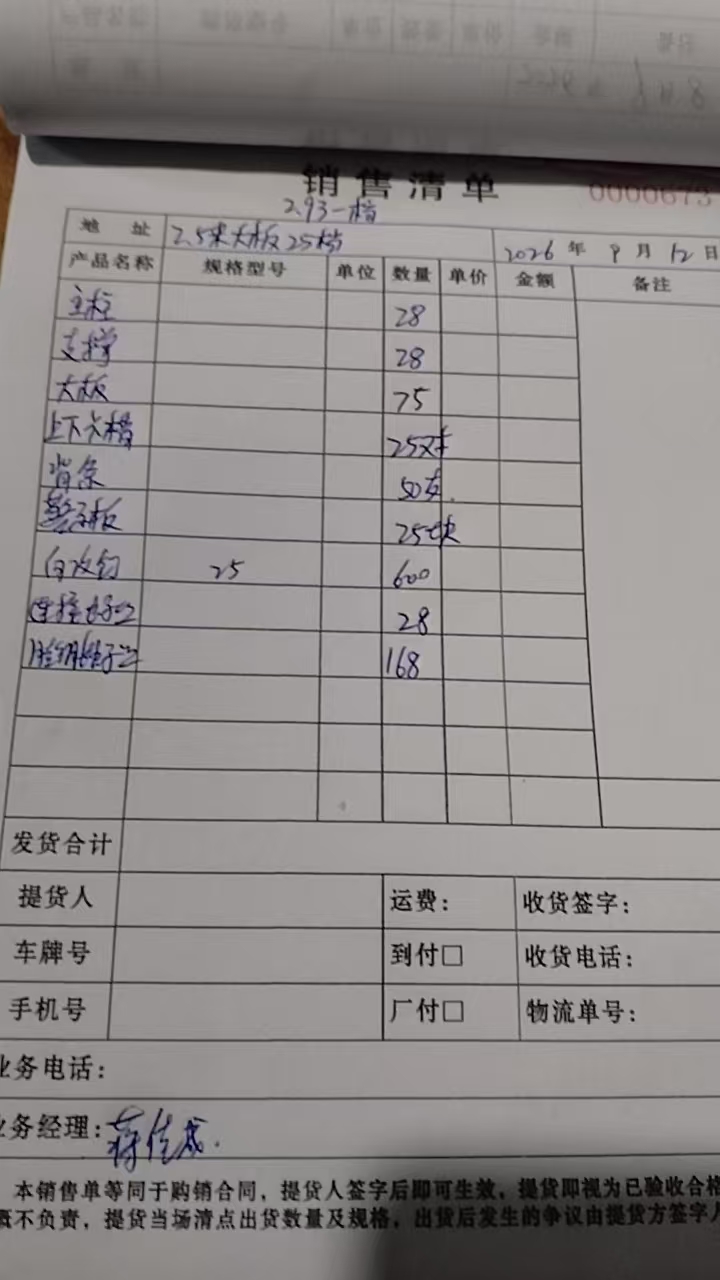 销售清单 0000673
2.93一档
地址 2.5米大板25档 2026年9月12日
产品名称 规格型号 单位 数量 单价 金额 备注
主柱 28
支撑 28
大板 75
上下卡槽 25对
背条 50支
警示板 25块
自攻钉 25 600
连接 28
168
发货合计
提货人 运费: 收货签字:
车牌号 到付□ 收货电话:
手机号 厂付□ 物流单号:
业务电话:
业务经理: 蒋佳成
本销售单等同于购销合同，提货人签字后即可生效，提货即视为已验收合格
概不负责，提货当场清点出货数量及规格，出货后发生的争议由提货方签字人